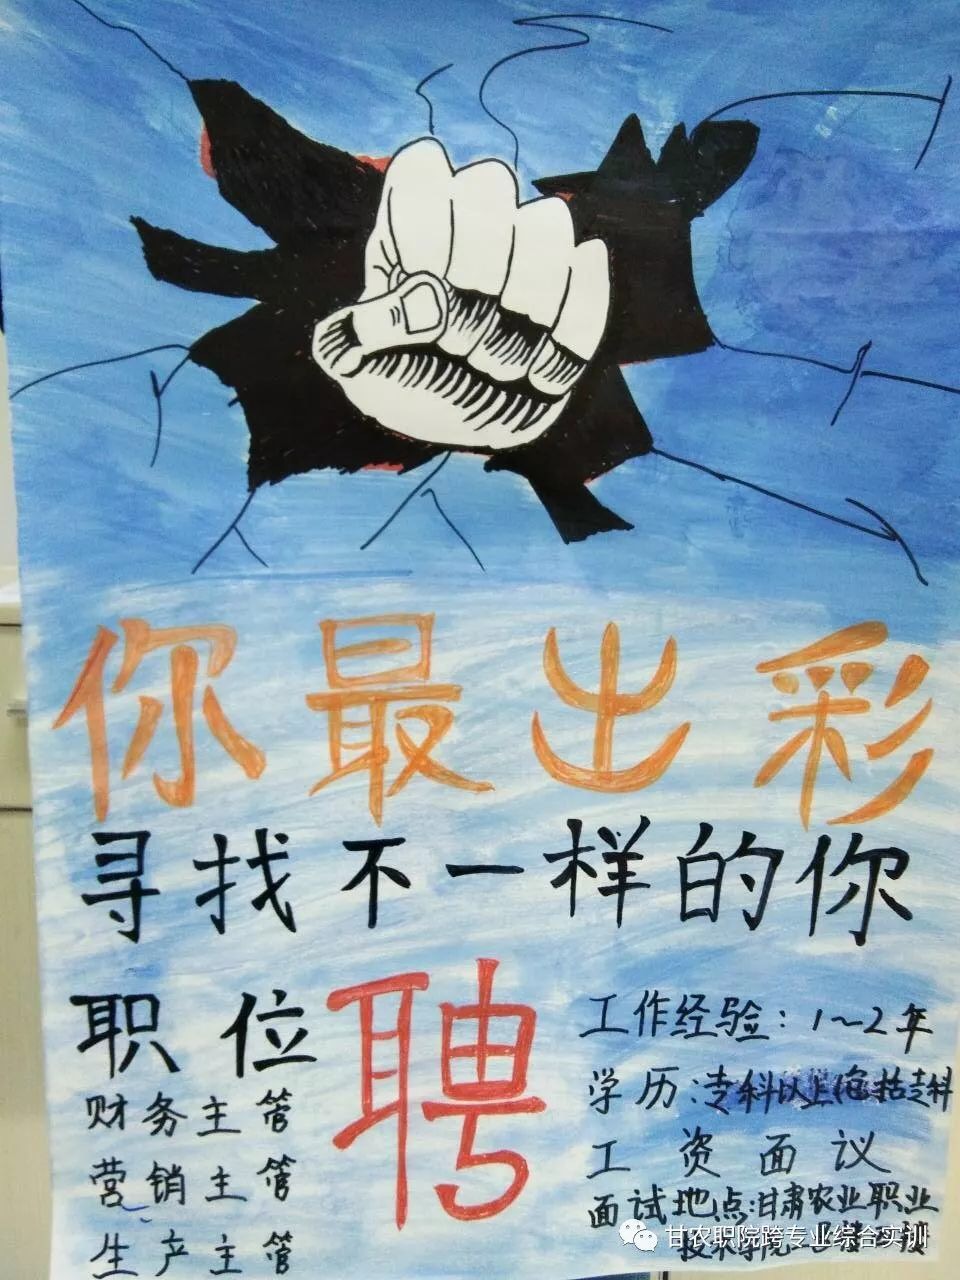 你最出彩
寻找不一样的你
职位
聘
财务主管
营销主管
生产主管
工作经验：1～2年
学历：专科以上包括专科
工资面议
面试地点：甘肃农业职业
技术学院一
甘农职院跨专业综合实训